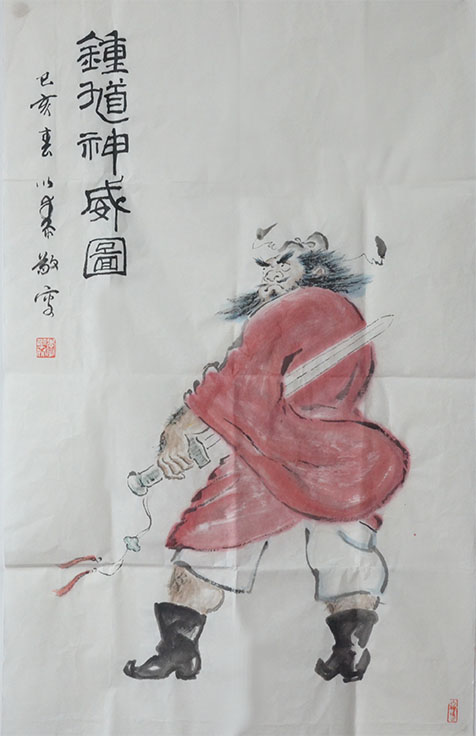 鍾馗神威圖
己亥春
敬寫